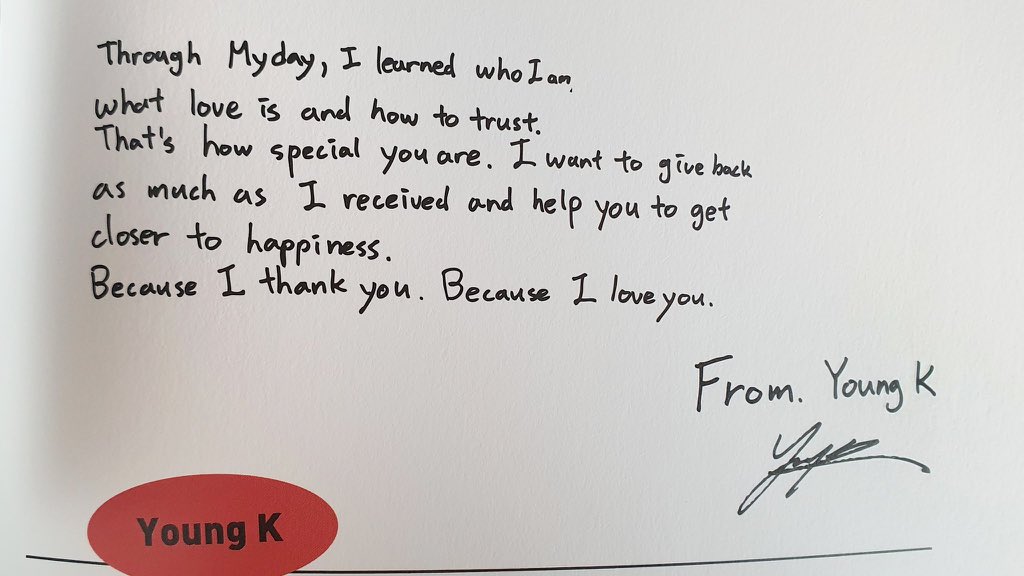 Through Myday, I learned who I am,
what love is and how to trust.
That's how special you are. I want to give back
as much as I received and help you to get
closer to happiness.
Because I thank you. Because I love you.
From. Young K
Young K